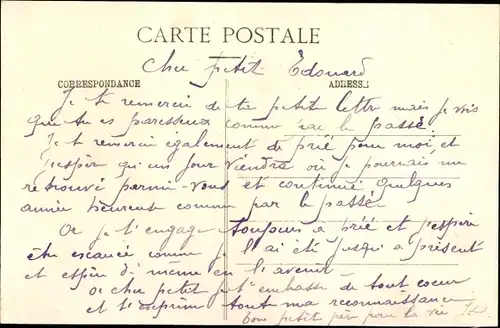 CARTE POSTALE
Cher petit Edouard
CORRESPONDANCE ADRESSE
Je te remercie de ta petite lettre mais je vois
que tu es paresseux comme par le passé.
Je te remercie également de prié pour moi, et
j'espère qu'un jour viendra où je pourrais me
retrouvé parmi-vous et continué quelques
année heureuse comme par le passé
Or je t'engage toujours a prié et j'espère
être exaucé comme je l'ai été jusqu'a présent
et espère de même en l'avenir
Or cher petit je t'embrasse de tout coeur
et t'exprime tout ma reconnaissance
Ton petit père pour la vie